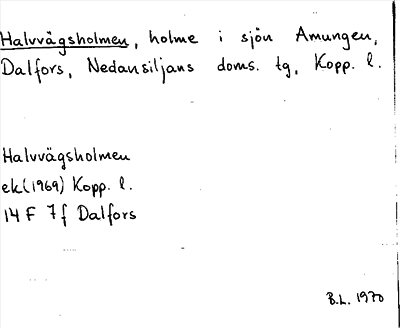 Halvvägsholmen, holme i sjön Amungen,
Dalfors, Nedansiljans doms. tg, Kopp. l.
Halvvägsholmen
ek(1969) Kopp. l.
14 F 7 f Dalfors
B.L. 1970